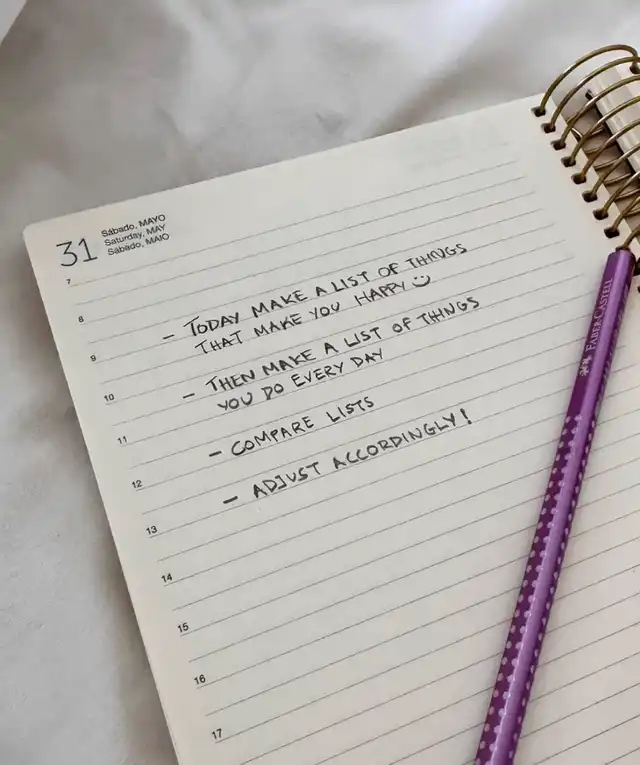 31
Sábado, MAYO
Saturday, MAY
Sábado, MAIO
7
8
- TODAY MAKE A LIST OF THINGS
9
THAT MAKE YOU HAPPY
10
- THEN MAKE A LIST OF THINGS
YOU DO EVERY DAY
11
- COMPARE LISTS
12
- ADJUST ACCORDINGLY!
13
14
15
16
17
FABER-CASTELL